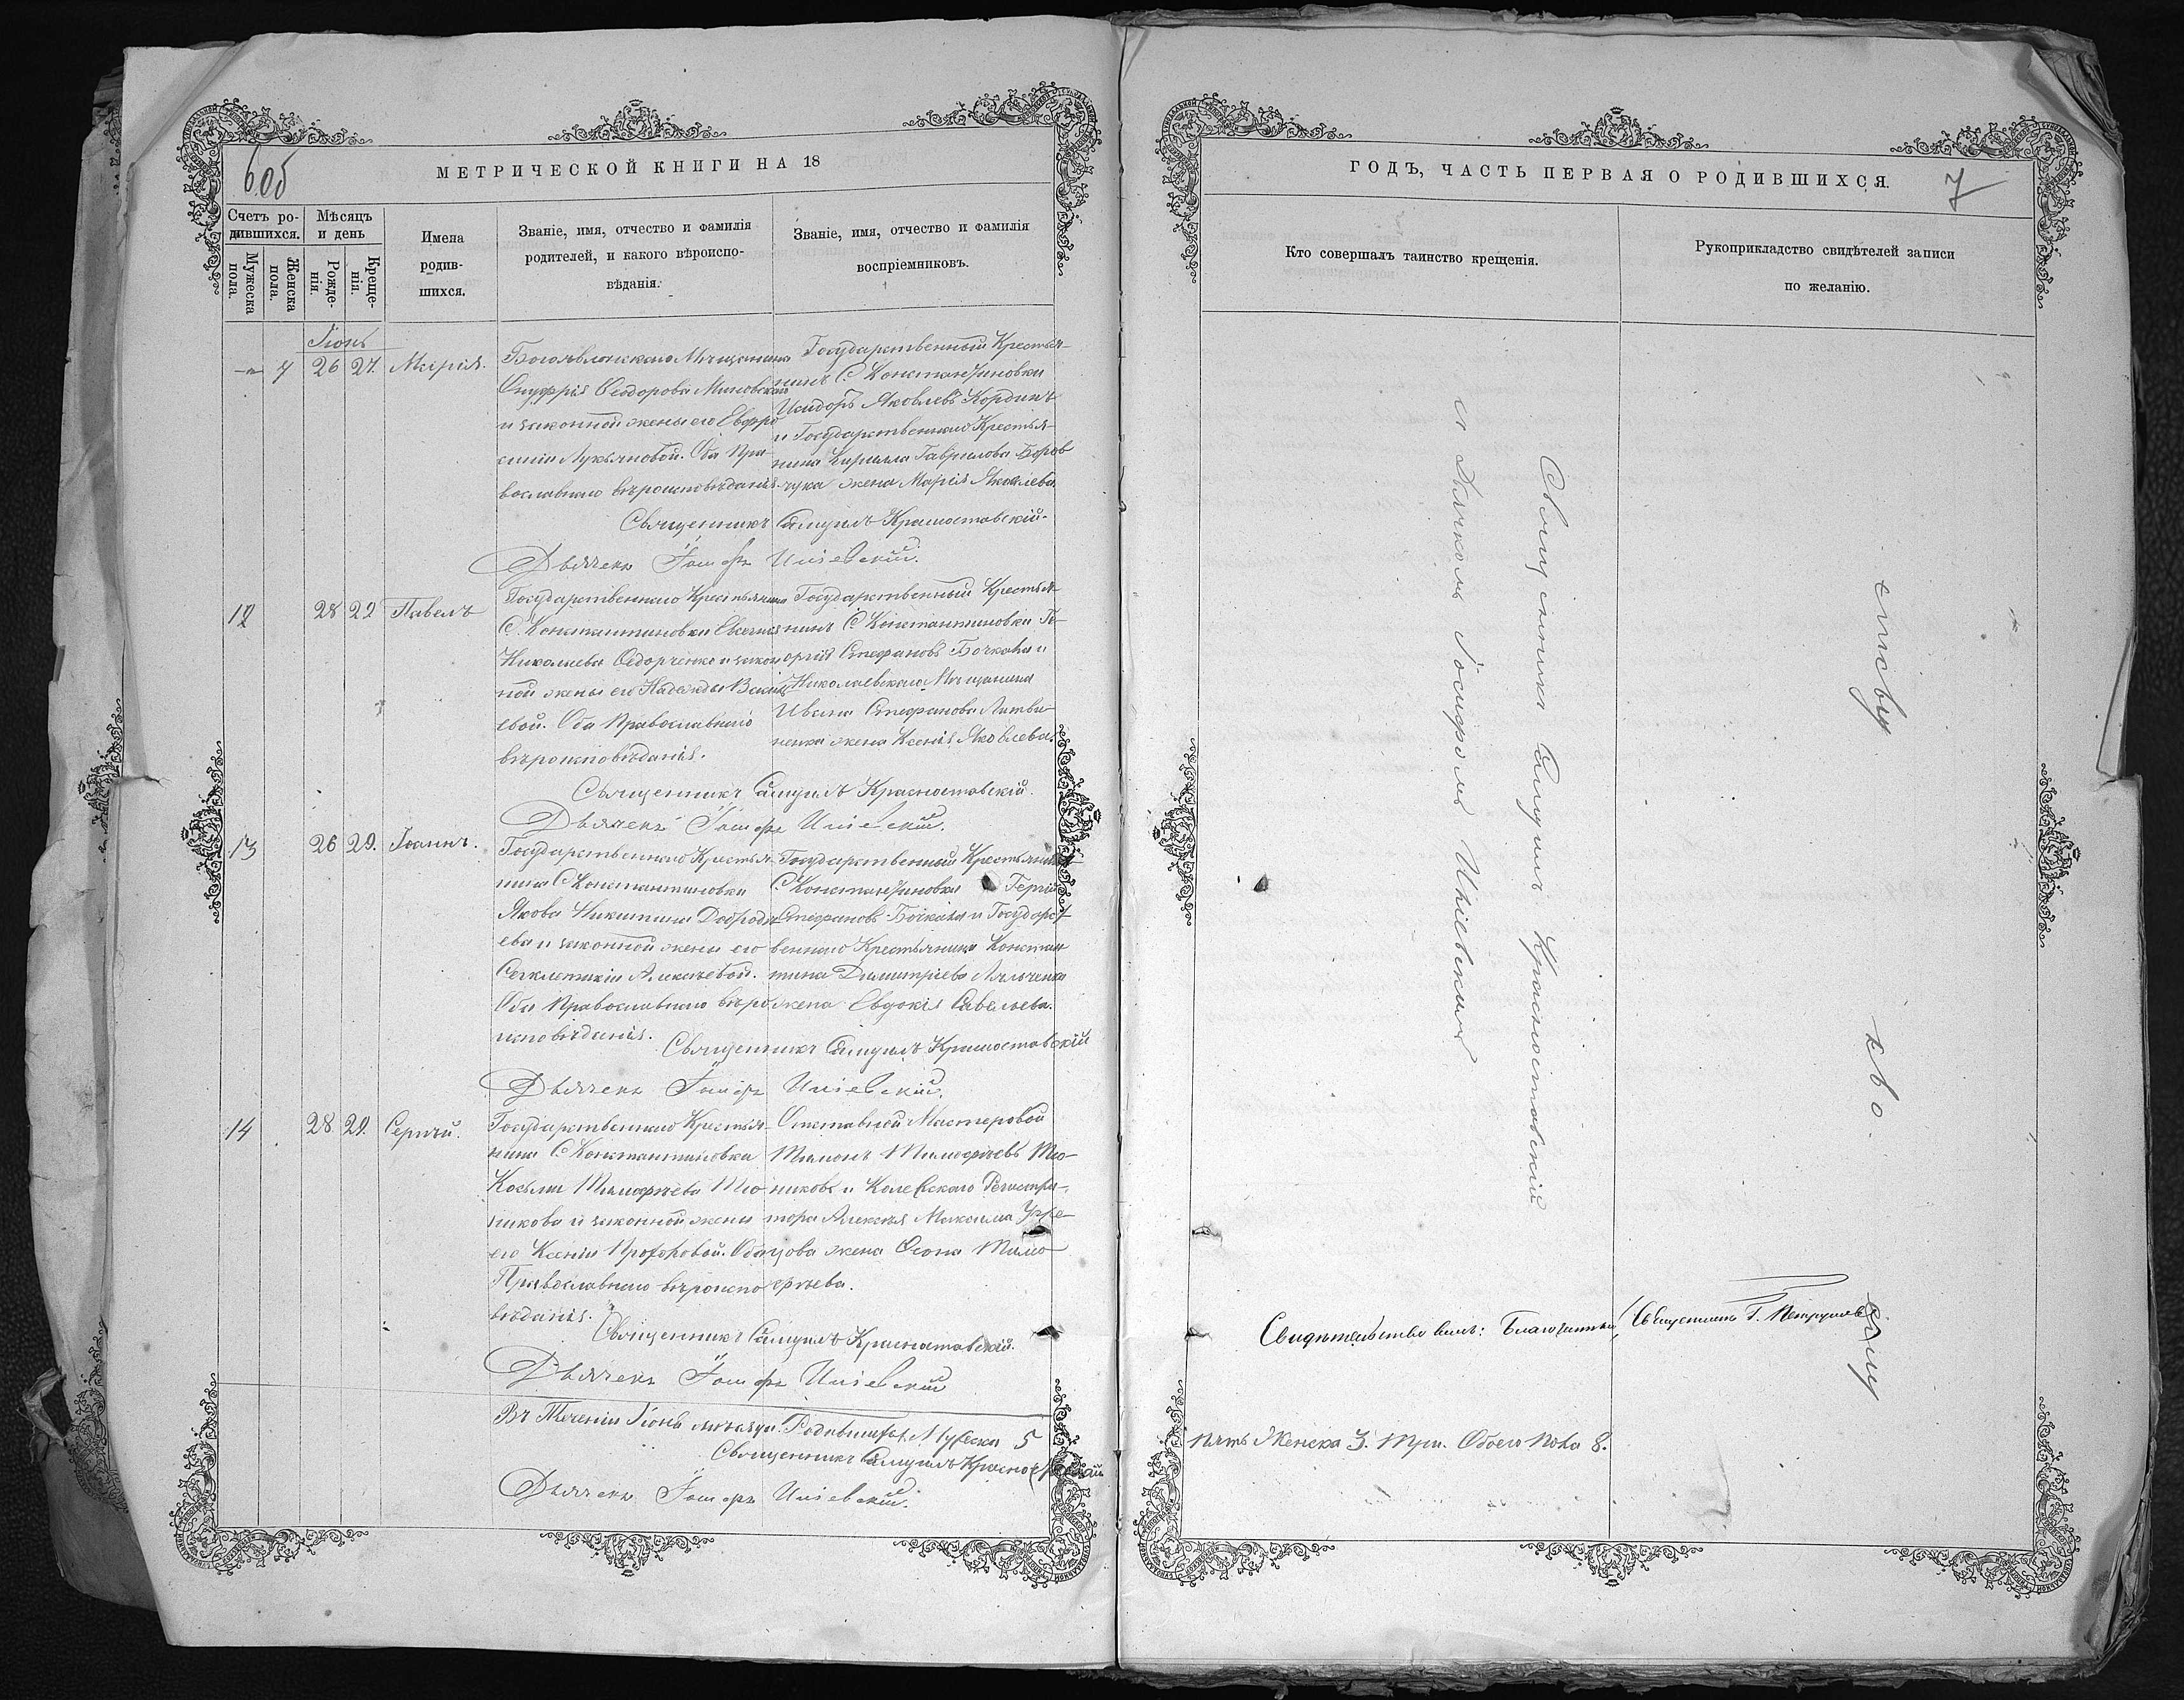 6 об
МЕТРИЧЕСКОЙ КНИГИ НА 18
Счетъ ро-
дившихся.
Мужеска пола.
Женска пола.
Мѣсяцъ
и день
Рожде-
нія.
Креще-
нія.
Имена
родив-
шихся.
Званіе, имя, отчество и фамилія
родителей, и какого вѣроиспо-
вѣданія.
Званіе, имя, отчество и фамилія
воспріемниковъ.
Іюнь
7 26 27. Марія.
Богоявленскаго Мѣщанина
Онуфрія Ѳеодорова
и законной жены его Евфро
синіи Лукьяновой. Оба Пра-
вославнаго вѣроисповѣданія.
Государственный Крестья-
нинъ С. Константиновки
Исидоръ Яковлевъ Кординъ
и Государственнаго Крестья-
нина Кирилла Гаврилова Боров
чука жена Марія Яковлева.
Священникъ Самуилъ Красноставскій.
Дьячекъ Іосифъ
12 28 29 Павелъ
Государственнаго Крестьянина
С. Константиновки
Николаева Ѳедорченко и закон
ной жены его Надежды Васил
евой. Оба Православнаго
вѣроисповѣданія.
Государственный Крестья-
нинъ С. Константиновки Ге-
оргій Стефановъ Бочковъ и
Николаевскаго Мѣщанина
Ивана Стефанова Литви-
ненка жена Ксенія Яковлева.
Священникъ Самуилъ Красноставскій.
Дьячекъ Іосифъ
13 26 29. Іоаннъ.
Государственнаго Крестья-
нина С. Константиновки
Якова Никитина
ева и законной жены его
Алексѣевой.
Оба Православнаго вѣро
исповѣданія.
Государственный Крестьянинъ
С. Константиновки
Стефановъ и Государст-
веннаго Крестьянина Констан
тина Димитріева
жена Евдокія Савельева.
Священникъ Самуилъ Красноставскій
Дьячекъ Іосифъ
14 28 29. Сергій.
Государственнаго Крестья-
нина С. Константиновка
Косьмы Тимофѣева Тю
никова и законной жены
его Ксеніи Прохоровой. Оба
Православнаго вѣроиспо
вѣданія.
Отставной Мастеровой
Тимофѣевъ Тю-
никовъ и Колежскаго Регистра-
тора Алексѣя Максима
жена Тимо-
фѣева.
Священникъ Самуилъ Красноставскій.
Дьячекъ Іосифъ
Въ Теченіи Іюнь мѣсяца Родившихся Мужеска 5
Священникъ Самуилъ Красноставскій
Дьячекъ Іосифъ
ГОДЪ, ЧАСТЬ ПЕРВАЯ О РОДИВШИХСЯ.
7
Кто совершалъ таинство крещенія.
Рукоприкладство свидѣтелей записи
по желанію.
Священникъ Самуилъ Красноставскій
съ Дьячкомъ Іосифомъ
Свидѣтельствовалъ: Благочинный, Священникъ Г.
пять Женска 3. три. Обоего пола 8.